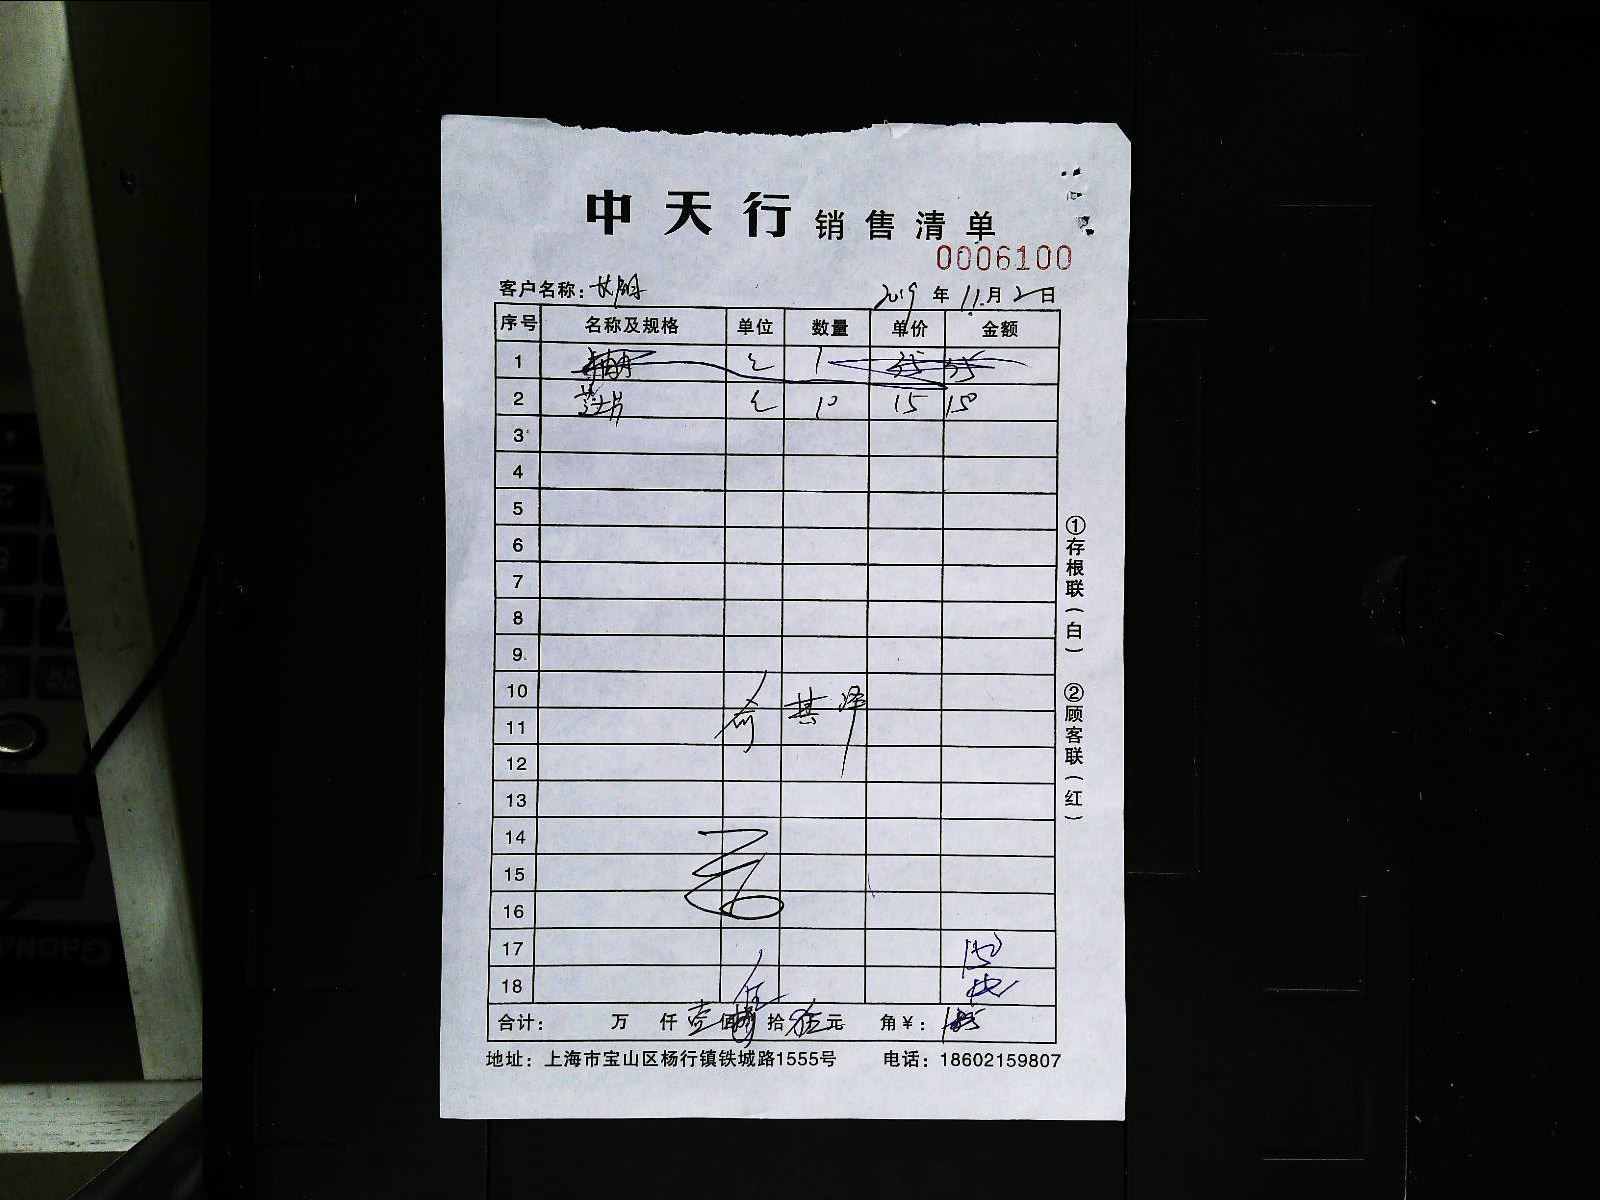 中天行 销售清单
0006100
客户名称：
2019 年 11 月 2 日
序号 名称及规格 单位 数量 单价 金额
1 1 35 35
2 10 15 150
3
4
5
6
7
8
9
10
11
12
13
14
15
16
17 150
18
合计： 万 仟 壹 佰 拾 元 角 ￥：
地址：上海市宝山区杨行镇铁城路1555号 电话：18602159807
①存根联（白） ②顾客联（红）